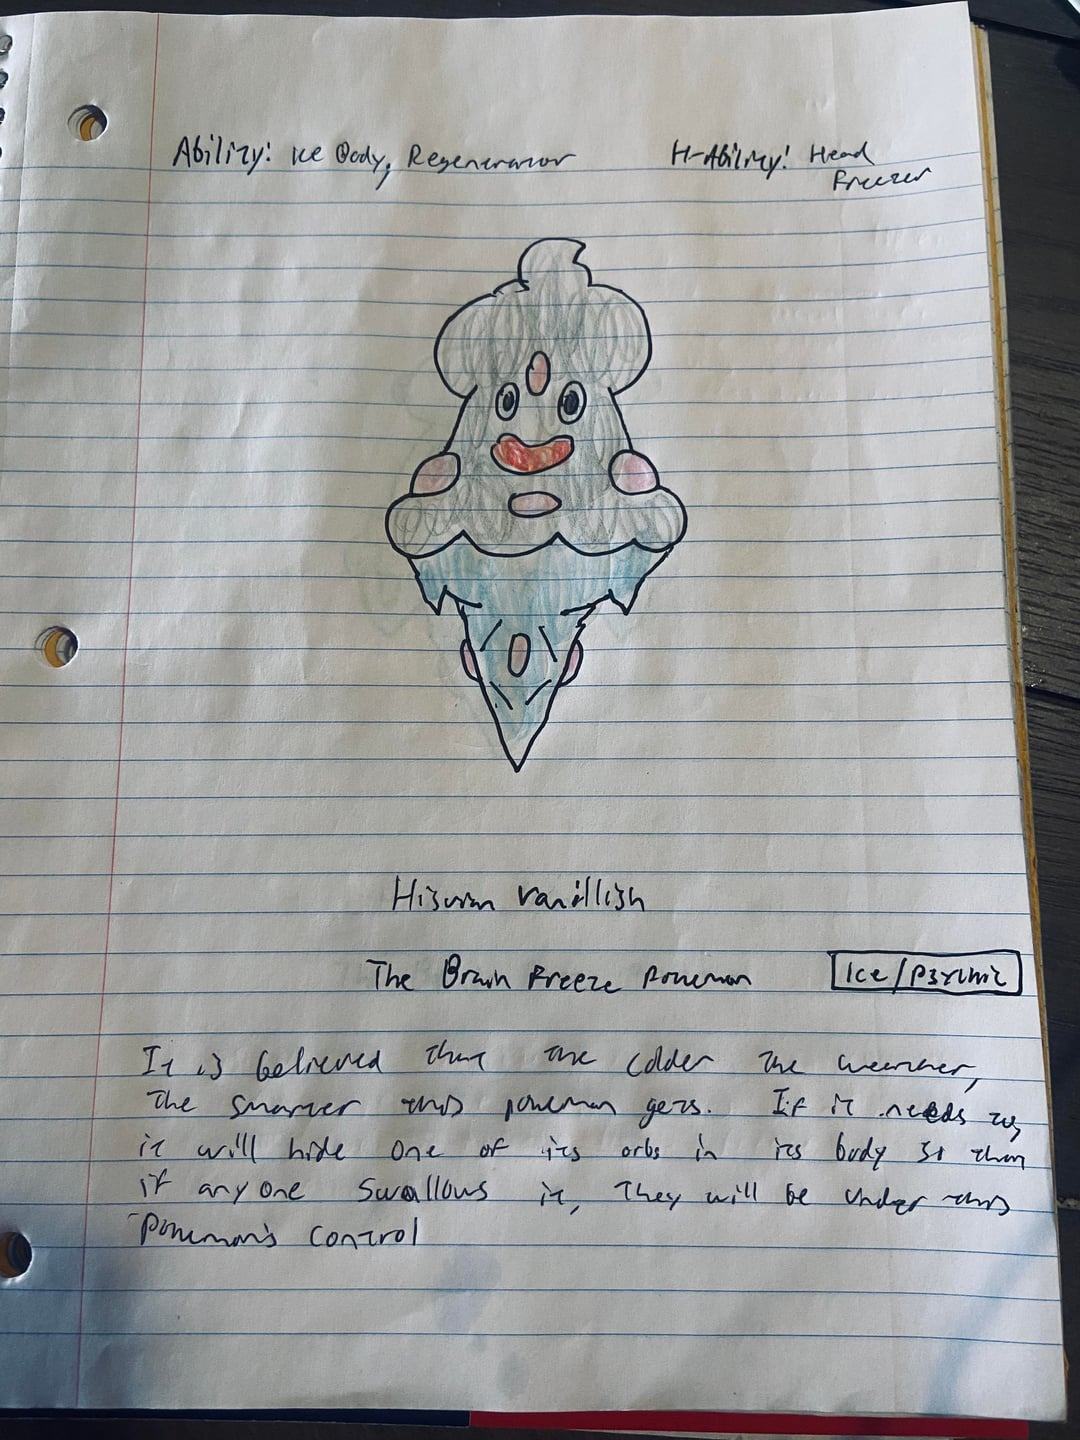 Ability: Ice Body, Regenerator
H-Ability: Head
Freezer
Hisuian Vanillish
The Brain Freeze Pokemon
Ice/Psychic
It is believed that the colder the weather,
the smarter this pokemon gets. If it needs to,
it will hide one of its orbs in its body so that
if anyone swallows it, they will be under this
Pokemon's control